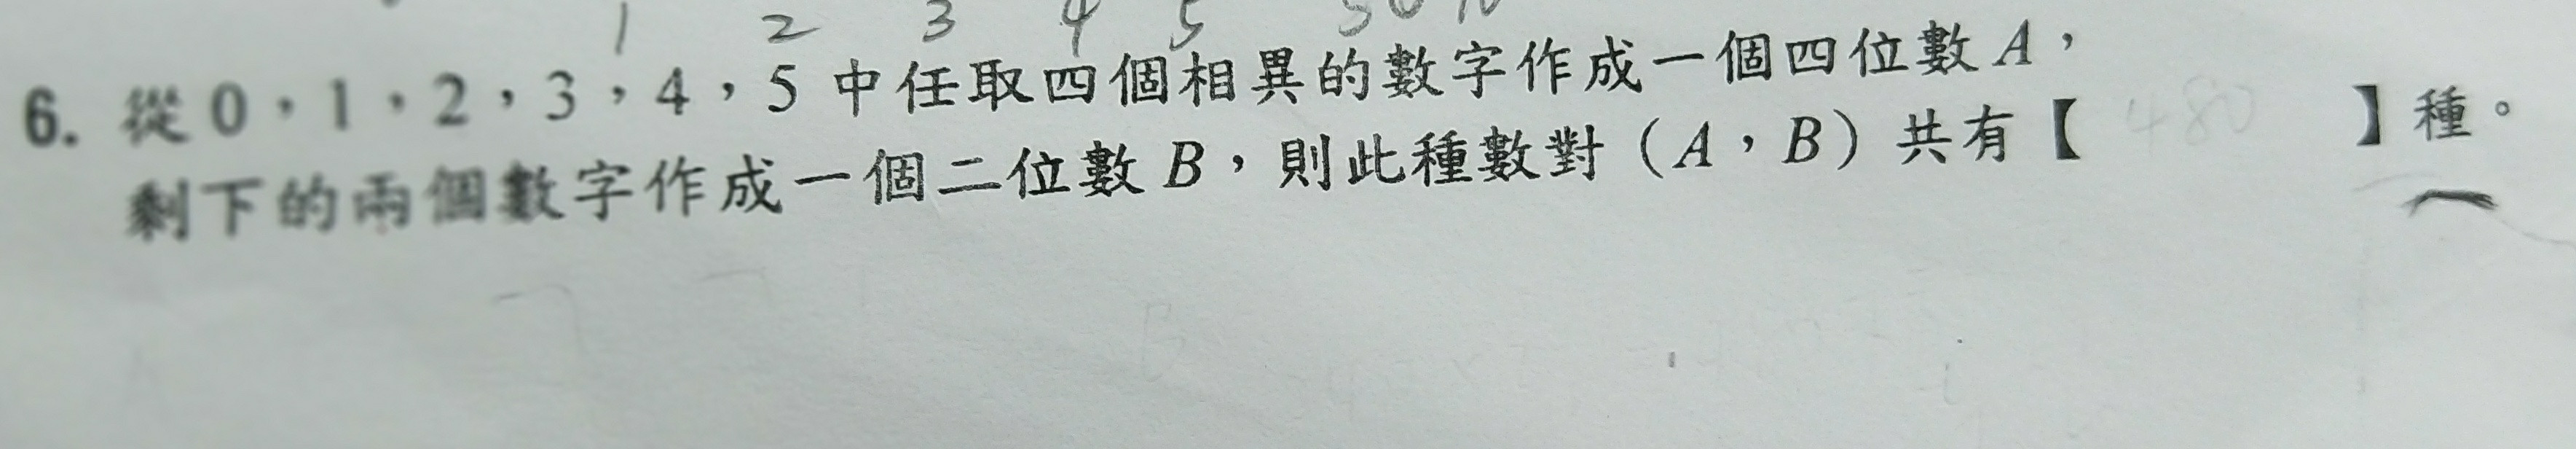 1 2 3 4 5
6. 從0，1，2，3，4，5中任取四個相異的數字作成一個四位數A，
剩下的兩個數字作成一個二位數B，則此種數對（A，B）共有【 480 】種。